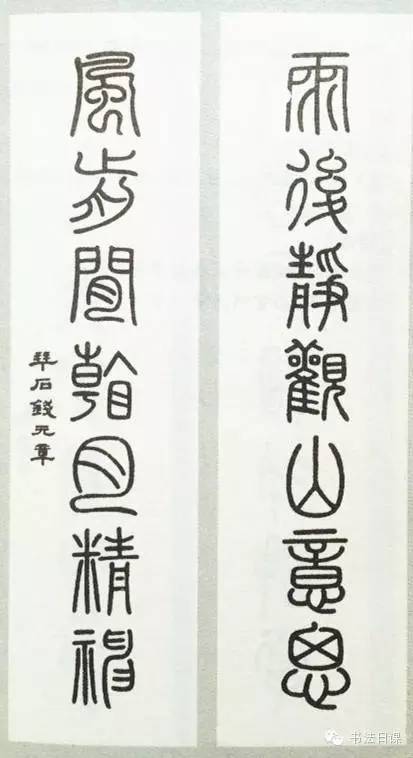 雨後靜觀山意思
風前閒看月精神
拜石錢元章
书法日课